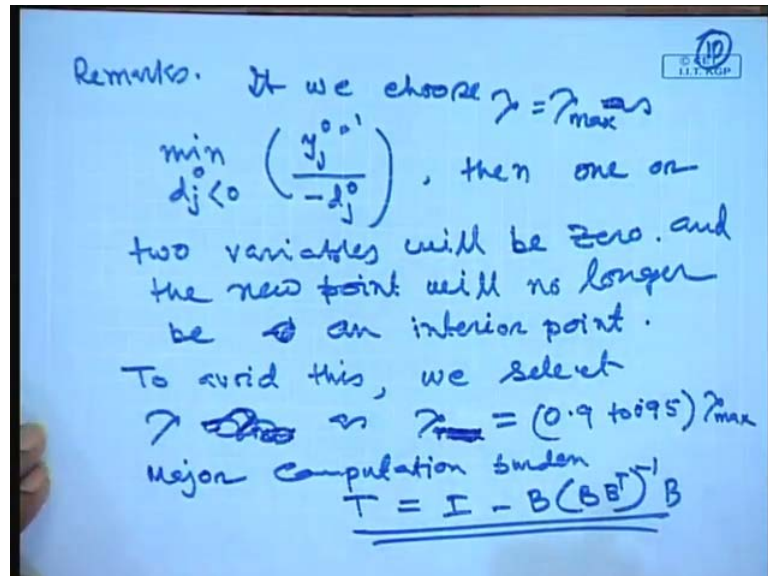 10
© CET
I.I.T. KGP
Remarks. If we choose λ = λmax as
min dj⁰<0 ( yj⁰·¹ / -dj⁰ ), then one or
two variables will be zero. and
the new point will no longer
be an interior point.
To avoid this, we select
λ as λ = (0.9 to 0.95) λmax
Major computation burden
T = I - B(BBᵀ)⁻¹B